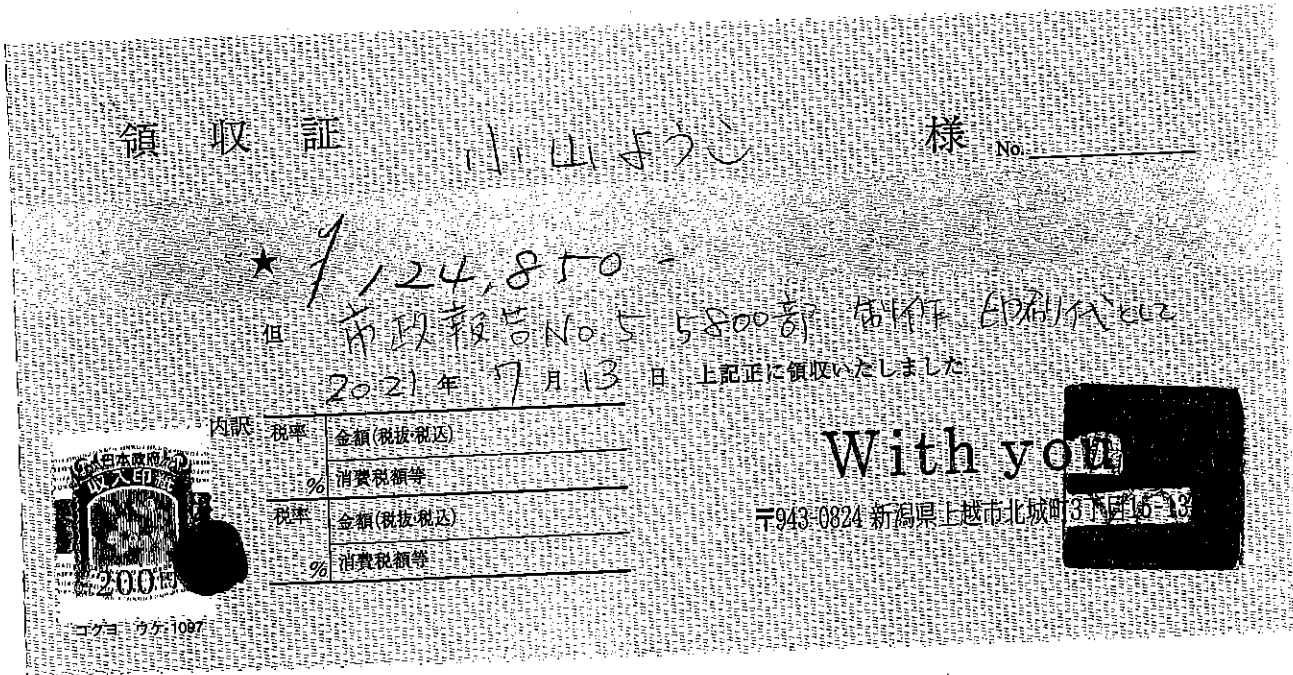 領収証 小山ようこ 様 No.
★ ¥124,850-
但 市政報告No.5 5800部 制作 印刷代として
2021年 7月13日 上記正に領収いたしました
内訳 税率 金額(税抜・税込)
% 消費税額等
税率 金額(税抜・税込)
% 消費税額等
With you
〒943-0824 新潟県上越市北城町3丁目15-13
日本政府
収入印紙
200円
コクヨ ウケ-1097